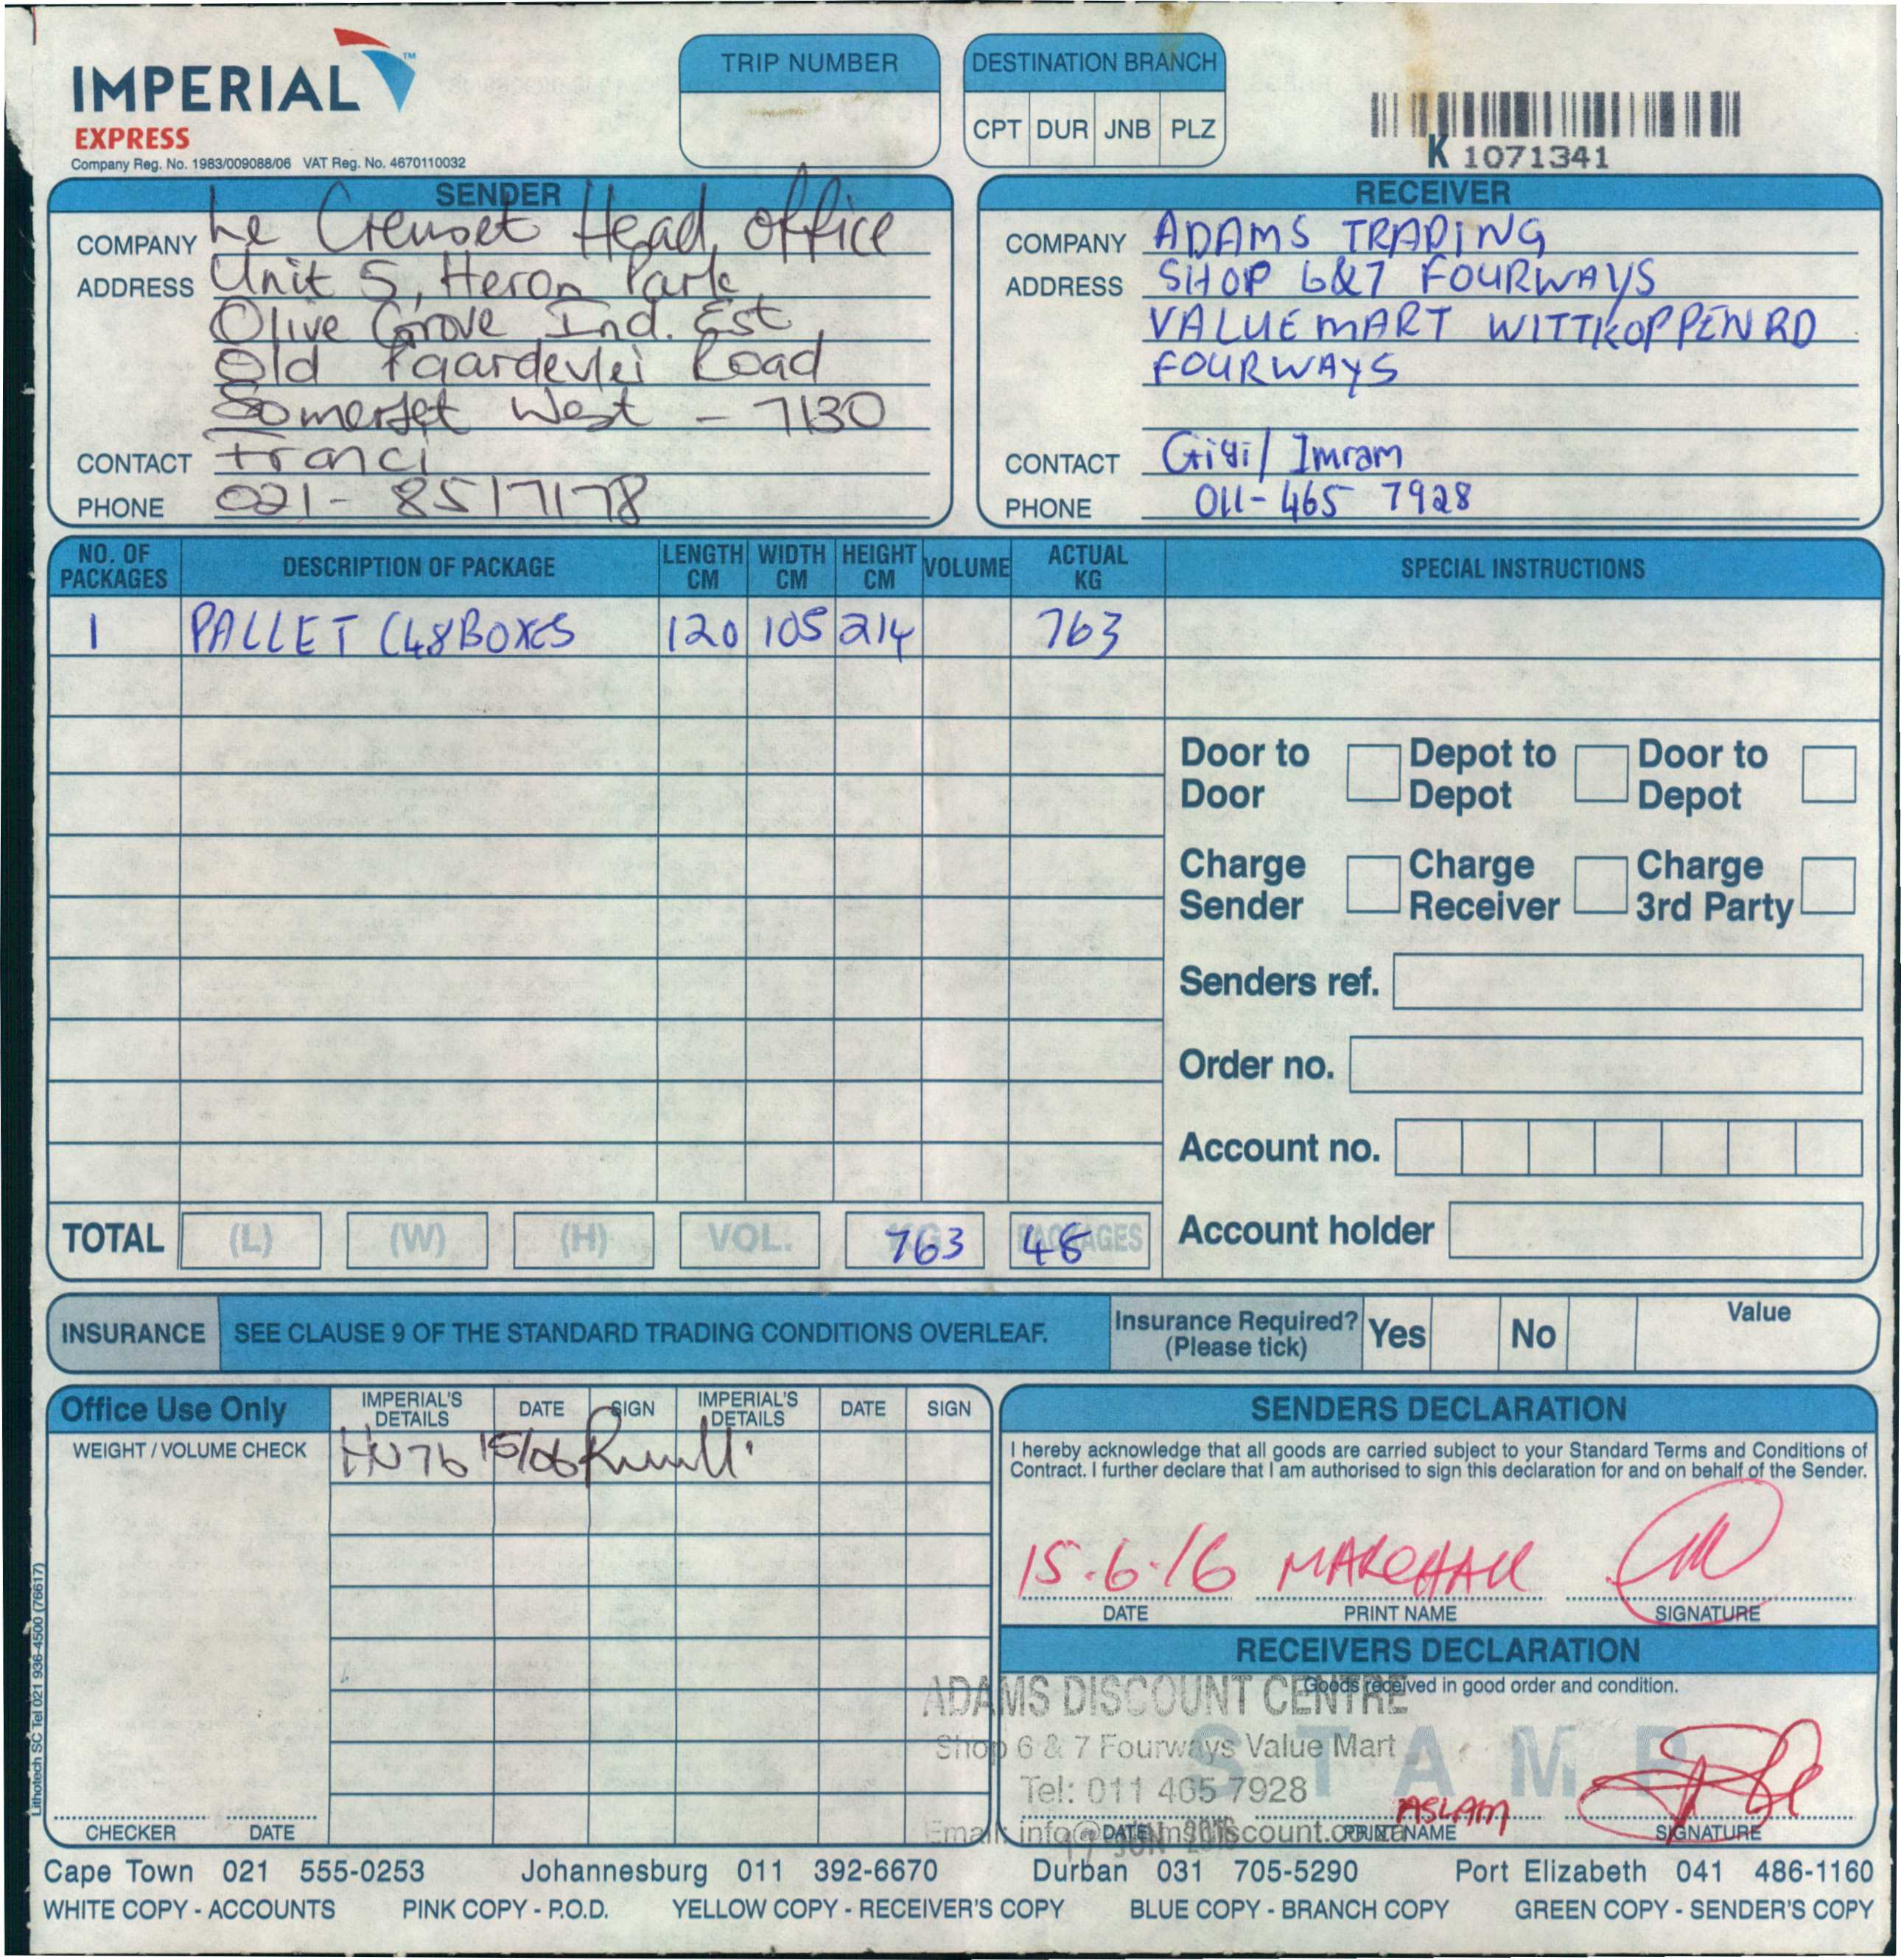 IMPERIAL™
EXPRESS
Company Reg. No. 1983/009088/06 VAT Reg. No. 4670110032
TRIP NUMBER
DESTINATION BRANCH
CPT DUR JNB PLZ
K 1071341
SENDER
COMPANY Le Creuset Head Office
ADDRESS Unit 5, Heron Park
Olive Grove Ind. Est
Old Paardevlei Road
Somerset West - 7130
CONTACT Franci
PHONE 021- 8517178
RECEIVER
COMPANY ADAMS TRADING
ADDRESS SHOP 6&7 FOURWAYS
VALUEMART WITTKOPPEN RD
FOURWAYS
CONTACT Gigi/ Imram
PHONE 011-465 7928
NO. OF PACKAGES DESCRIPTION OF PACKAGE LENGTH CM WIDTH CM HEIGHT CM VOLUME ACTUAL KG SPECIAL INSTRUCTIONS
1 PALLET (48 BOXES 120 105 214 763
Door to Door Depot to Depot Door to Depot
Charge Sender Charge Receiver Charge 3rd Party
Senders ref.
Order no.
Account no.
Account holder
TOTAL (L) (W) (H) VOL. KG 763 PACKAGES 48
INSURANCE SEE CLAUSE 9 OF THE STANDARD TRADING CONDITIONS OVERLEAF. Insurance Required? (Please tick) Yes No Value
Office Use Only IMPERIAL'S DETAILS DATE SIGN IMPERIAL'S DETAILS DATE SIGN
WEIGHT / VOLUME CHECK 15/06
CHECKER DATE
SENDERS DECLARATION
I hereby acknowledge that all goods are carried subject to your Standard Terms and Conditions of
Contract. I further declare that I am authorised to sign this declaration for and on behalf of the Sender.
15.6.16
DATE PRINT NAME SIGNATURE
RECEIVERS DECLARATION
Goods received in good order and condition.
STAMP
ADAMS DISCOUNT CENTRE
Shop 6 & 7 Fourways Value Mart
Tel: 011 465 7928
ASLAM
DATE PRINT NAME SIGNATURE
Lithotech SC Tel 021 936-4500 (76617)
Cape Town 021 555-0253 Johannesburg 011 392-6670 Durban 031 705-5290 Port Elizabeth 041 486-1160
WHITE COPY - ACCOUNTS PINK COPY - P.O.D. YELLOW COPY - RECEIVER'S COPY BLUE COPY - BRANCH COPY GREEN COPY - SENDER'S COPY